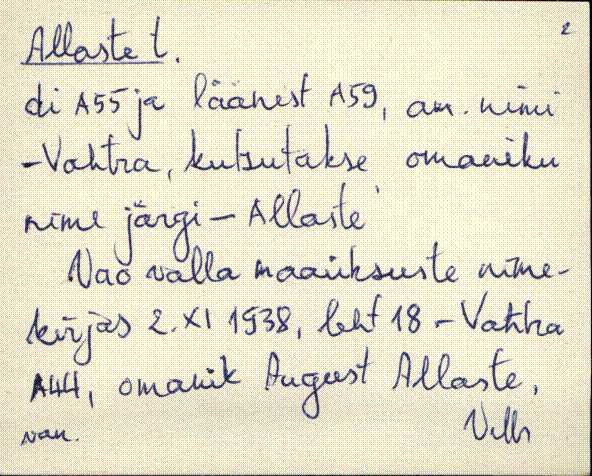 2
Allaste t.
di A55 ja läänest A59, am. nimi
-Vahtra, kutsutakse omaniku
nime järgi - Allaste
Vao valla maaüksuste nime-
kirjas 2.XI 1938, leht 18 - Vahtra
A44, omanik August Allaste,
van.